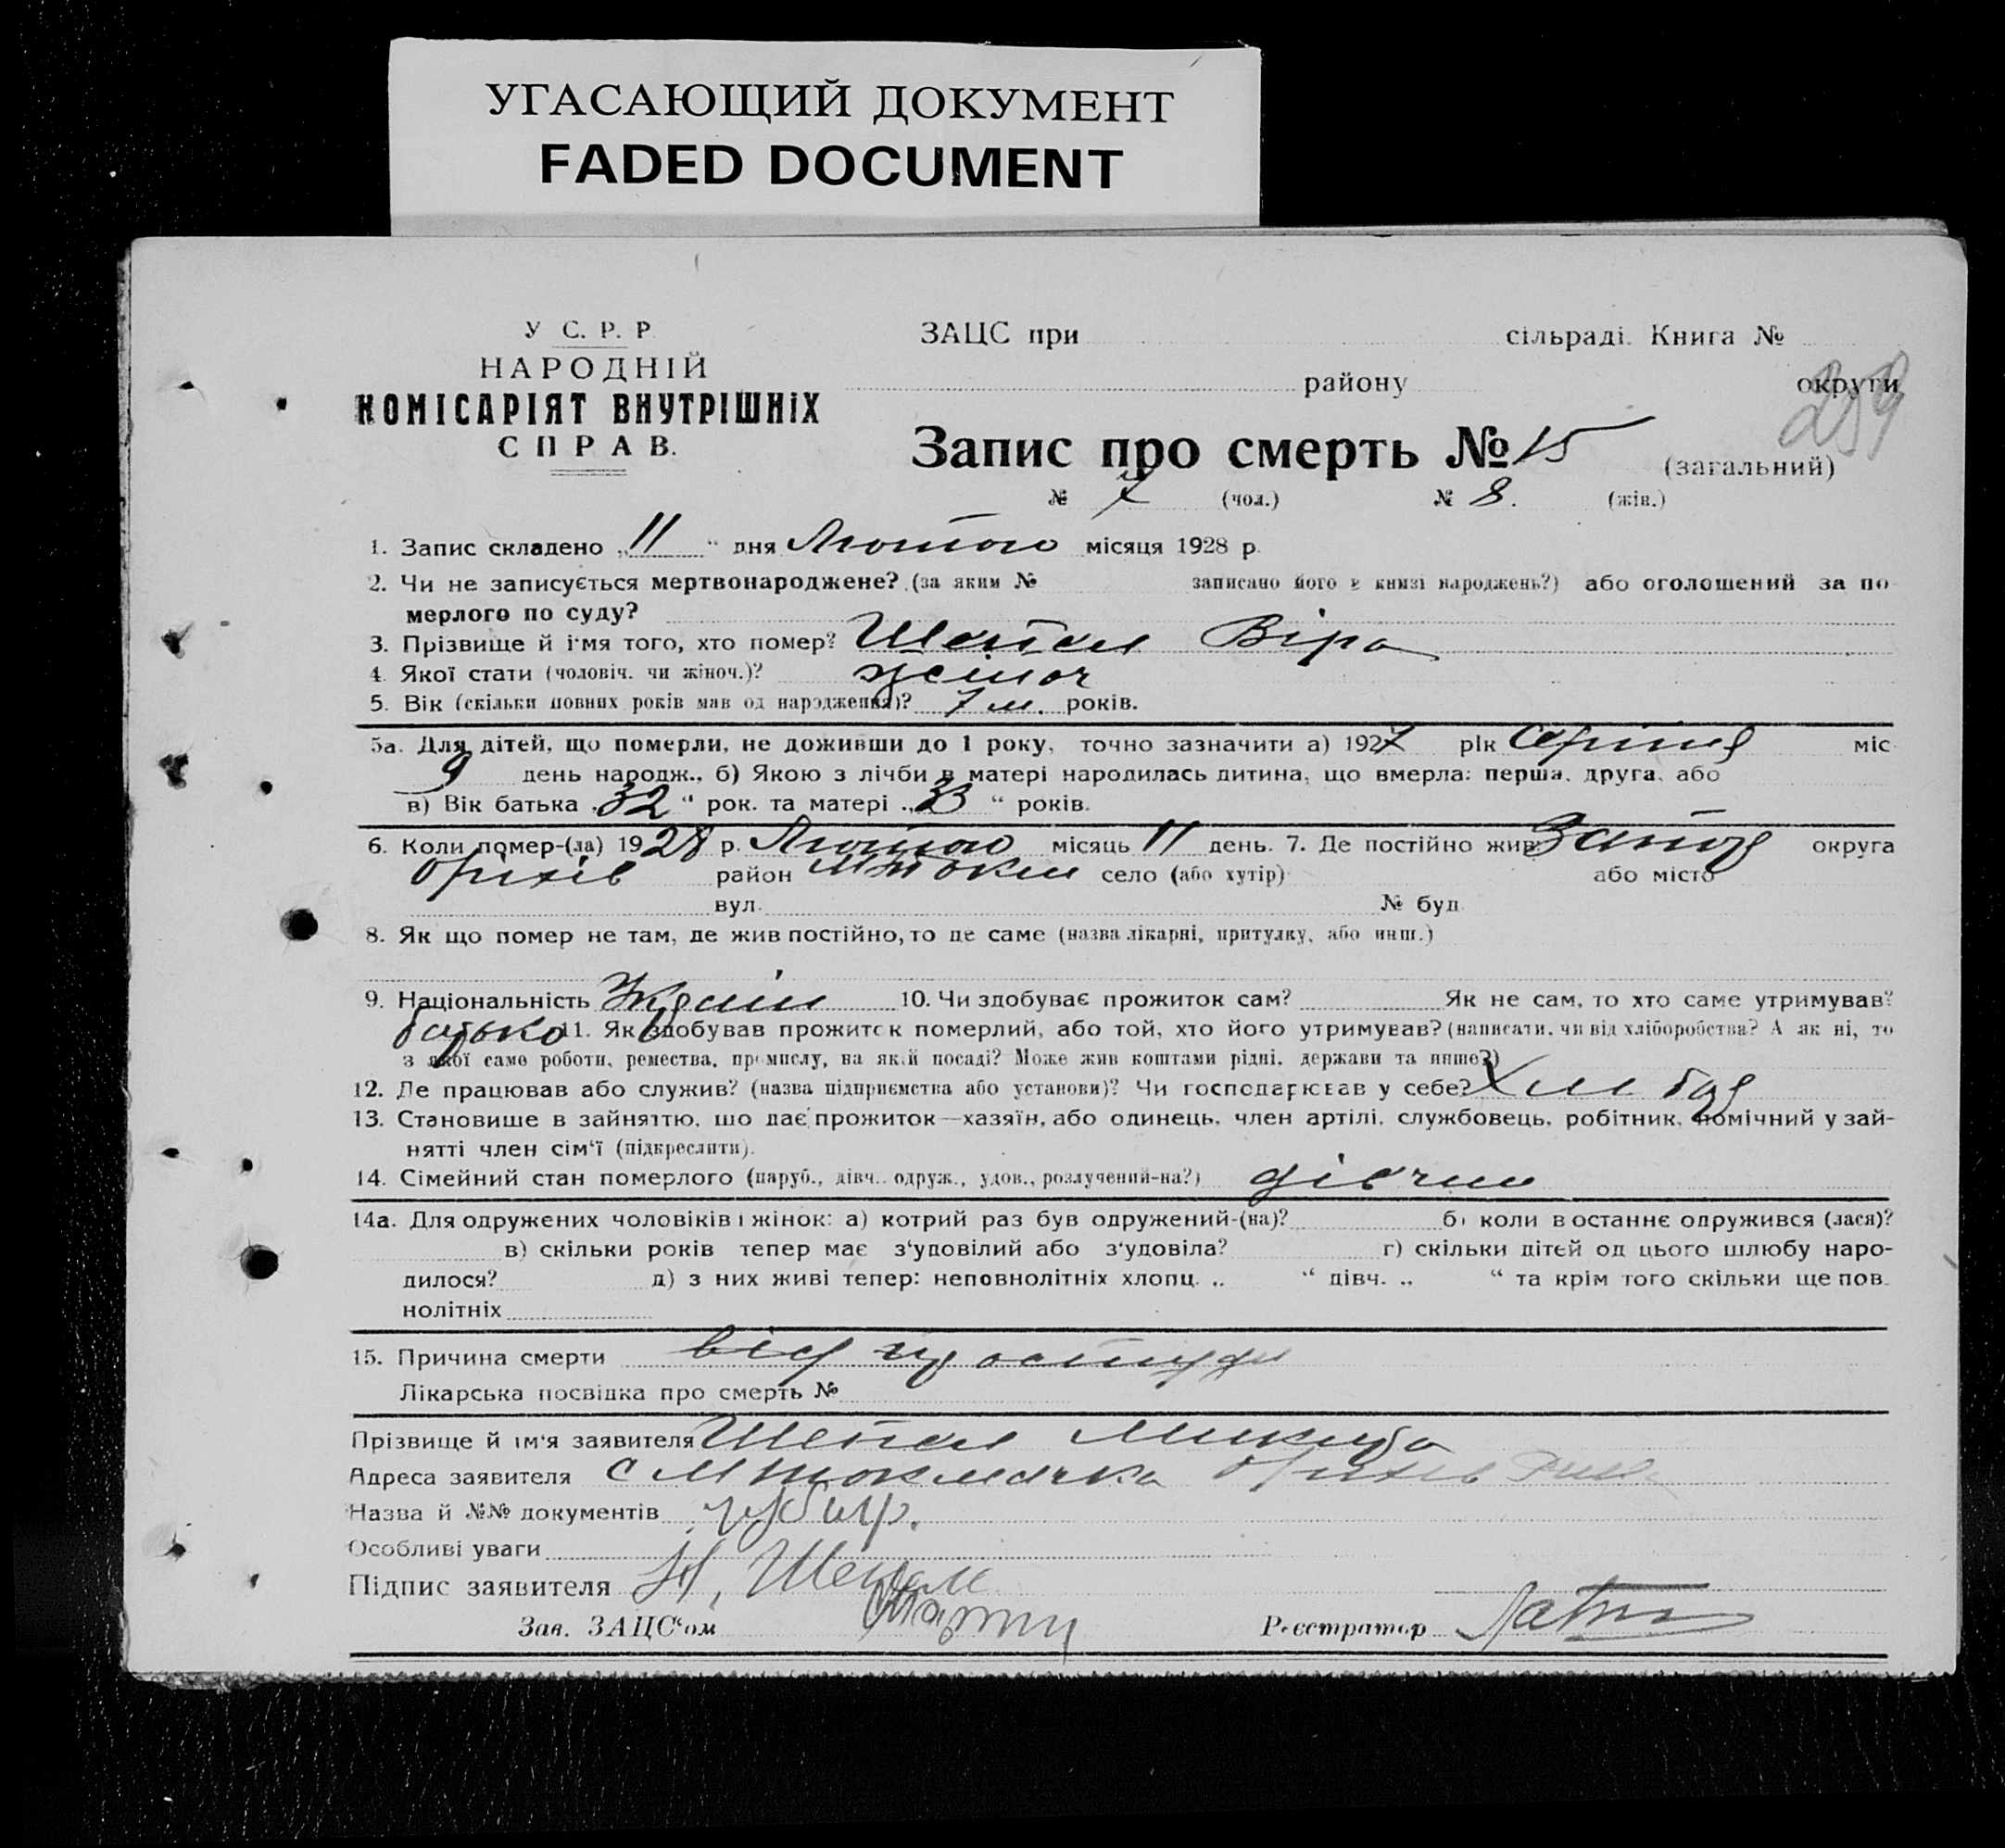 УГАСАЮЩИЙ ДОКУМЕНТ
FADED DOCUMENT
У С. Р. Р
НАРОДНІЙ
КОМІСАРІЯТ ВНУТРІШНІХ
СПРАВ.
ЗАЦС при сільраді. Книга №
району округи
259
Запис про смерть № 15 (загальний)
№ 7 (чол.) № 8. (жін.)
1. Запис складено „11“ дня Лютого місяця 1928 р.
2. Чи не записується мертвонароджене? (за яким № записано його в книзі народжень?) або оголошений за по
мерлого по суду?
3. Прізвище й і'мя того, хто помер? Віра
4. Якої стати (чоловіч. чи жіноч.)? жіноч
5. Вік (скільки повних років мав од народження)? 7 м. років.
5а. Для дітей, що померли, не доживши до 1 року, точно зазначити а) 1927 рік Серпня міс
9 день народж., б) Якою з лічби в матері народилась дитина, що вмерла: перша, друга, або
в) Вік батька „32“ рок. та матері „33“ років.
6. Коли помер-(ла) 1928 р. Лютого місяць 11 день. 7. Де постійно жив округа
Оріхів район село (або хутір) або місто
вул. № буд.
8. Як що помер не там, де жив постійно, то де саме (назва лікарні, притулку, або инш.)
9. Національність 10. Чи здобуває прожиток сам? Як не сам, то хто саме утримував?
батько 11. Як здобував прожиток померлий, або той, хто його утримував? (написати, чи від хліборобства? А як ні, то
з якої саме роботи, ремества, промислу, на якій посаді? Може жив коштами рідні, держави та инше?)
12. Де працював або служив? (назва підприємства або установи)? Чи господарював у себе?
13. Становише в зайняттю, що дає прожиток—хазяїн, або одинець, член артілі, службовець, робітник, помічний у зай-
нятті член сім'ї (підкреслити).
14. Сімейний стан померлого (паруб., дівч. одруж., удов., розлучений-на?) дівчин
14а. Для одружених чоловіків і жінок: а) котрий раз був одружений-(на)? б) коли востаннє одружився (лася)?
в) скільки років тепер має з'удовілий або з'удовіла? г) скільки дітей од цього шлюбу наро-
дилося? д) з них живі тепер: неповнолітніх хлопц. „ “ дівч. „ “ та крім того скільки ще пов
нолітніх
15. Причина смерти від простуди
Лікарська посвідка про смерть №
Прізвище й ім'я заявителя Микита
Адреса заявителя с М Токмачка Оріхів
Назва й №№ документів
Особливі уваги
Підпис заявителя
Зав. ЗАЦС'ом Реєстратор